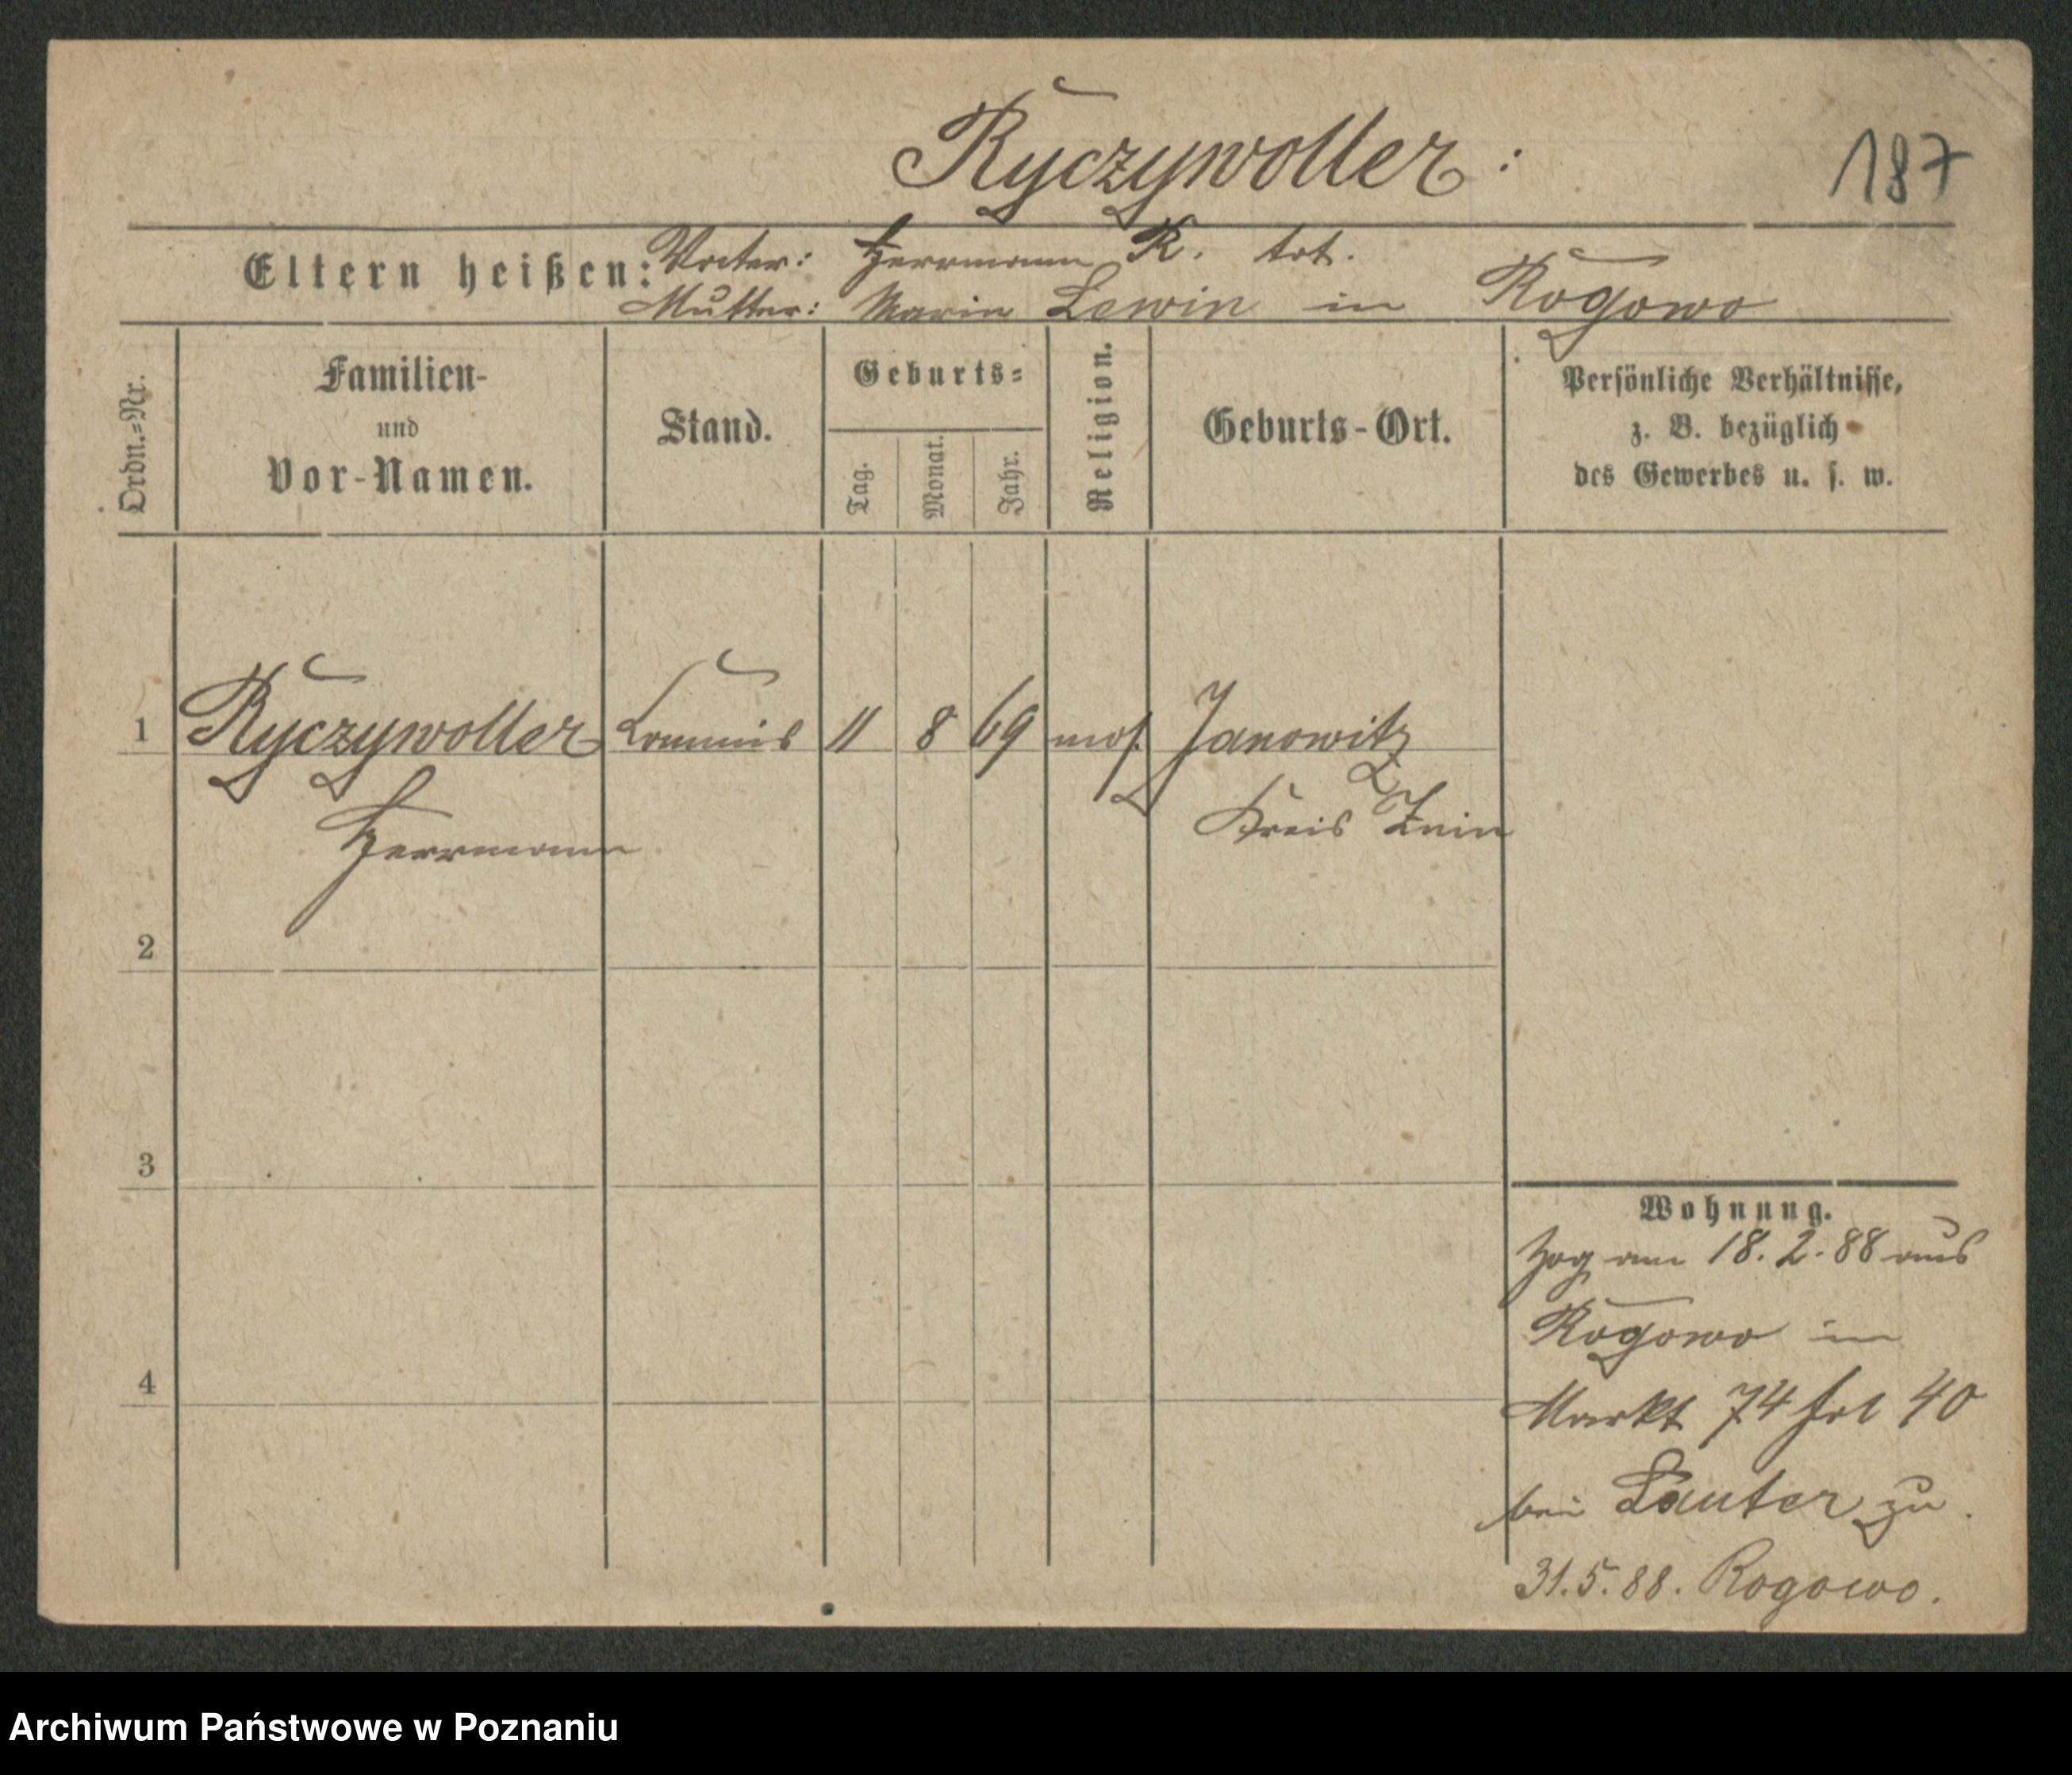 Ryczywoller:
187
Eltern heißen: Vater: Herrmann R. tot.
Mutter: Marie Lewin in Rogowo
Ordn.=Nr.
Familien-
und
Vor-Namen.
Stand.
Geburts=
Tag.
Monat.
Jahr.
Religion.
Geburts-Ort.
Persönliche Verhältnisse,
z. B. bezüglich
des Gewerbes u. s. w.
1 Ryczywoller Commis 11 8 69 mos. Janowitz
Herrmann Kreis Znin
2
3
4
Wohnung.
Zog am 18.2.88 aus
Rogowo in
Markt 74 40
bei Lauter zu
31.5.88. Rogowo.
Archiwum Państwowe w Poznaniu